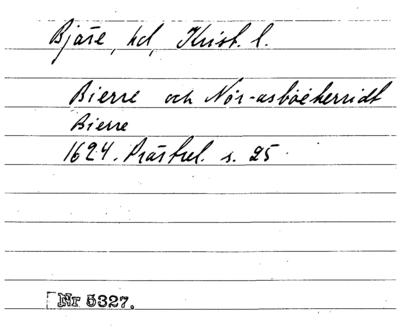 Bjäre, hd, Krist. l.
Bierre och Nör-asboéherridt
Bierre
1624. Prästrel. s. 25
Nr 5327.